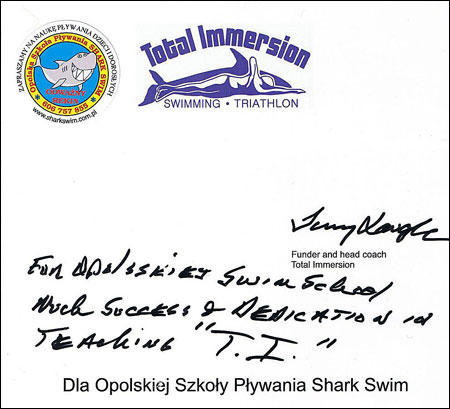 ZAPRASZAMY NA NAUKĘ PŁYWANIA DZIECI I DOROSŁYCH
Opolska Szkoła Pływania SHARK SWIM
ODWAŻNY
ŻUKIA
606 757 855
www.sharkswim.com.pl
Total Immersion
SWIMMING • TRIATHLON
Funder and head coach
Total Immersion
FOR OPOLSSKIEJ SWIM SCHOOL
MUCH SUCCESS & DEDICATION IN
TEACHING "T.I."
Dla Opolskiej Szkoły Pływania Shark Swim